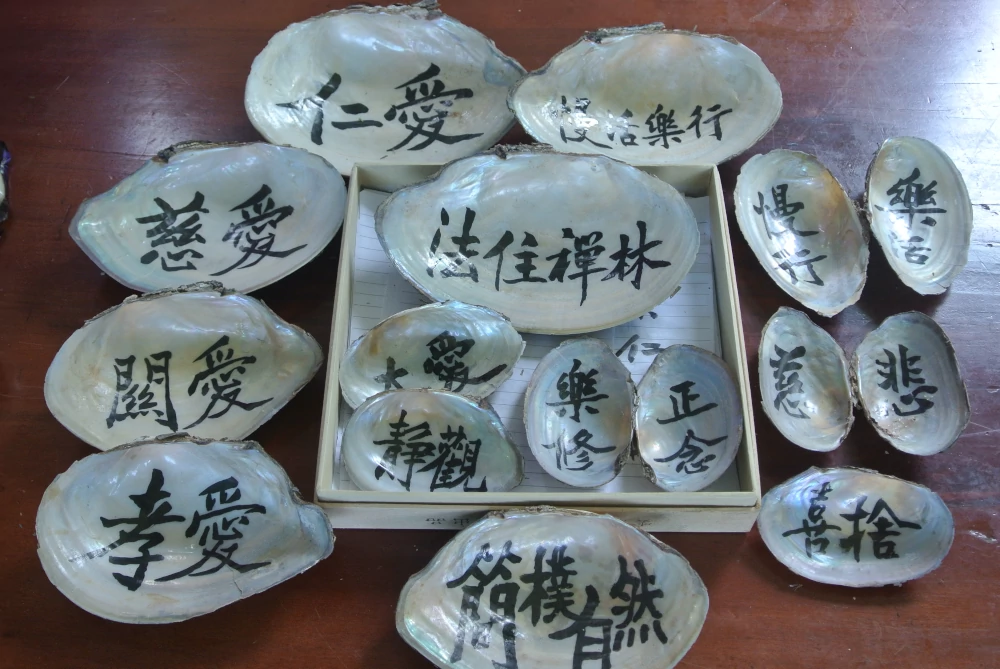 仁愛
慢活樂行
慈愛
法住禪林
慢行
樂活
關愛
大愛
靜觀
樂修
正念
仁
慈
悲
孝愛
喜捨
簡樸自然